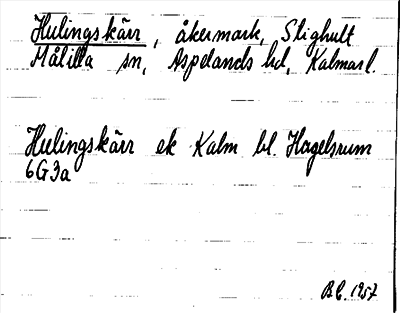 Hulingskärr, åkermark, Slighult
Målilla sn, Aspelands hd, Kalmar l.
Hulingskärr ek Kalm bl. Hagelsrum
6G3a
B.E. 1957